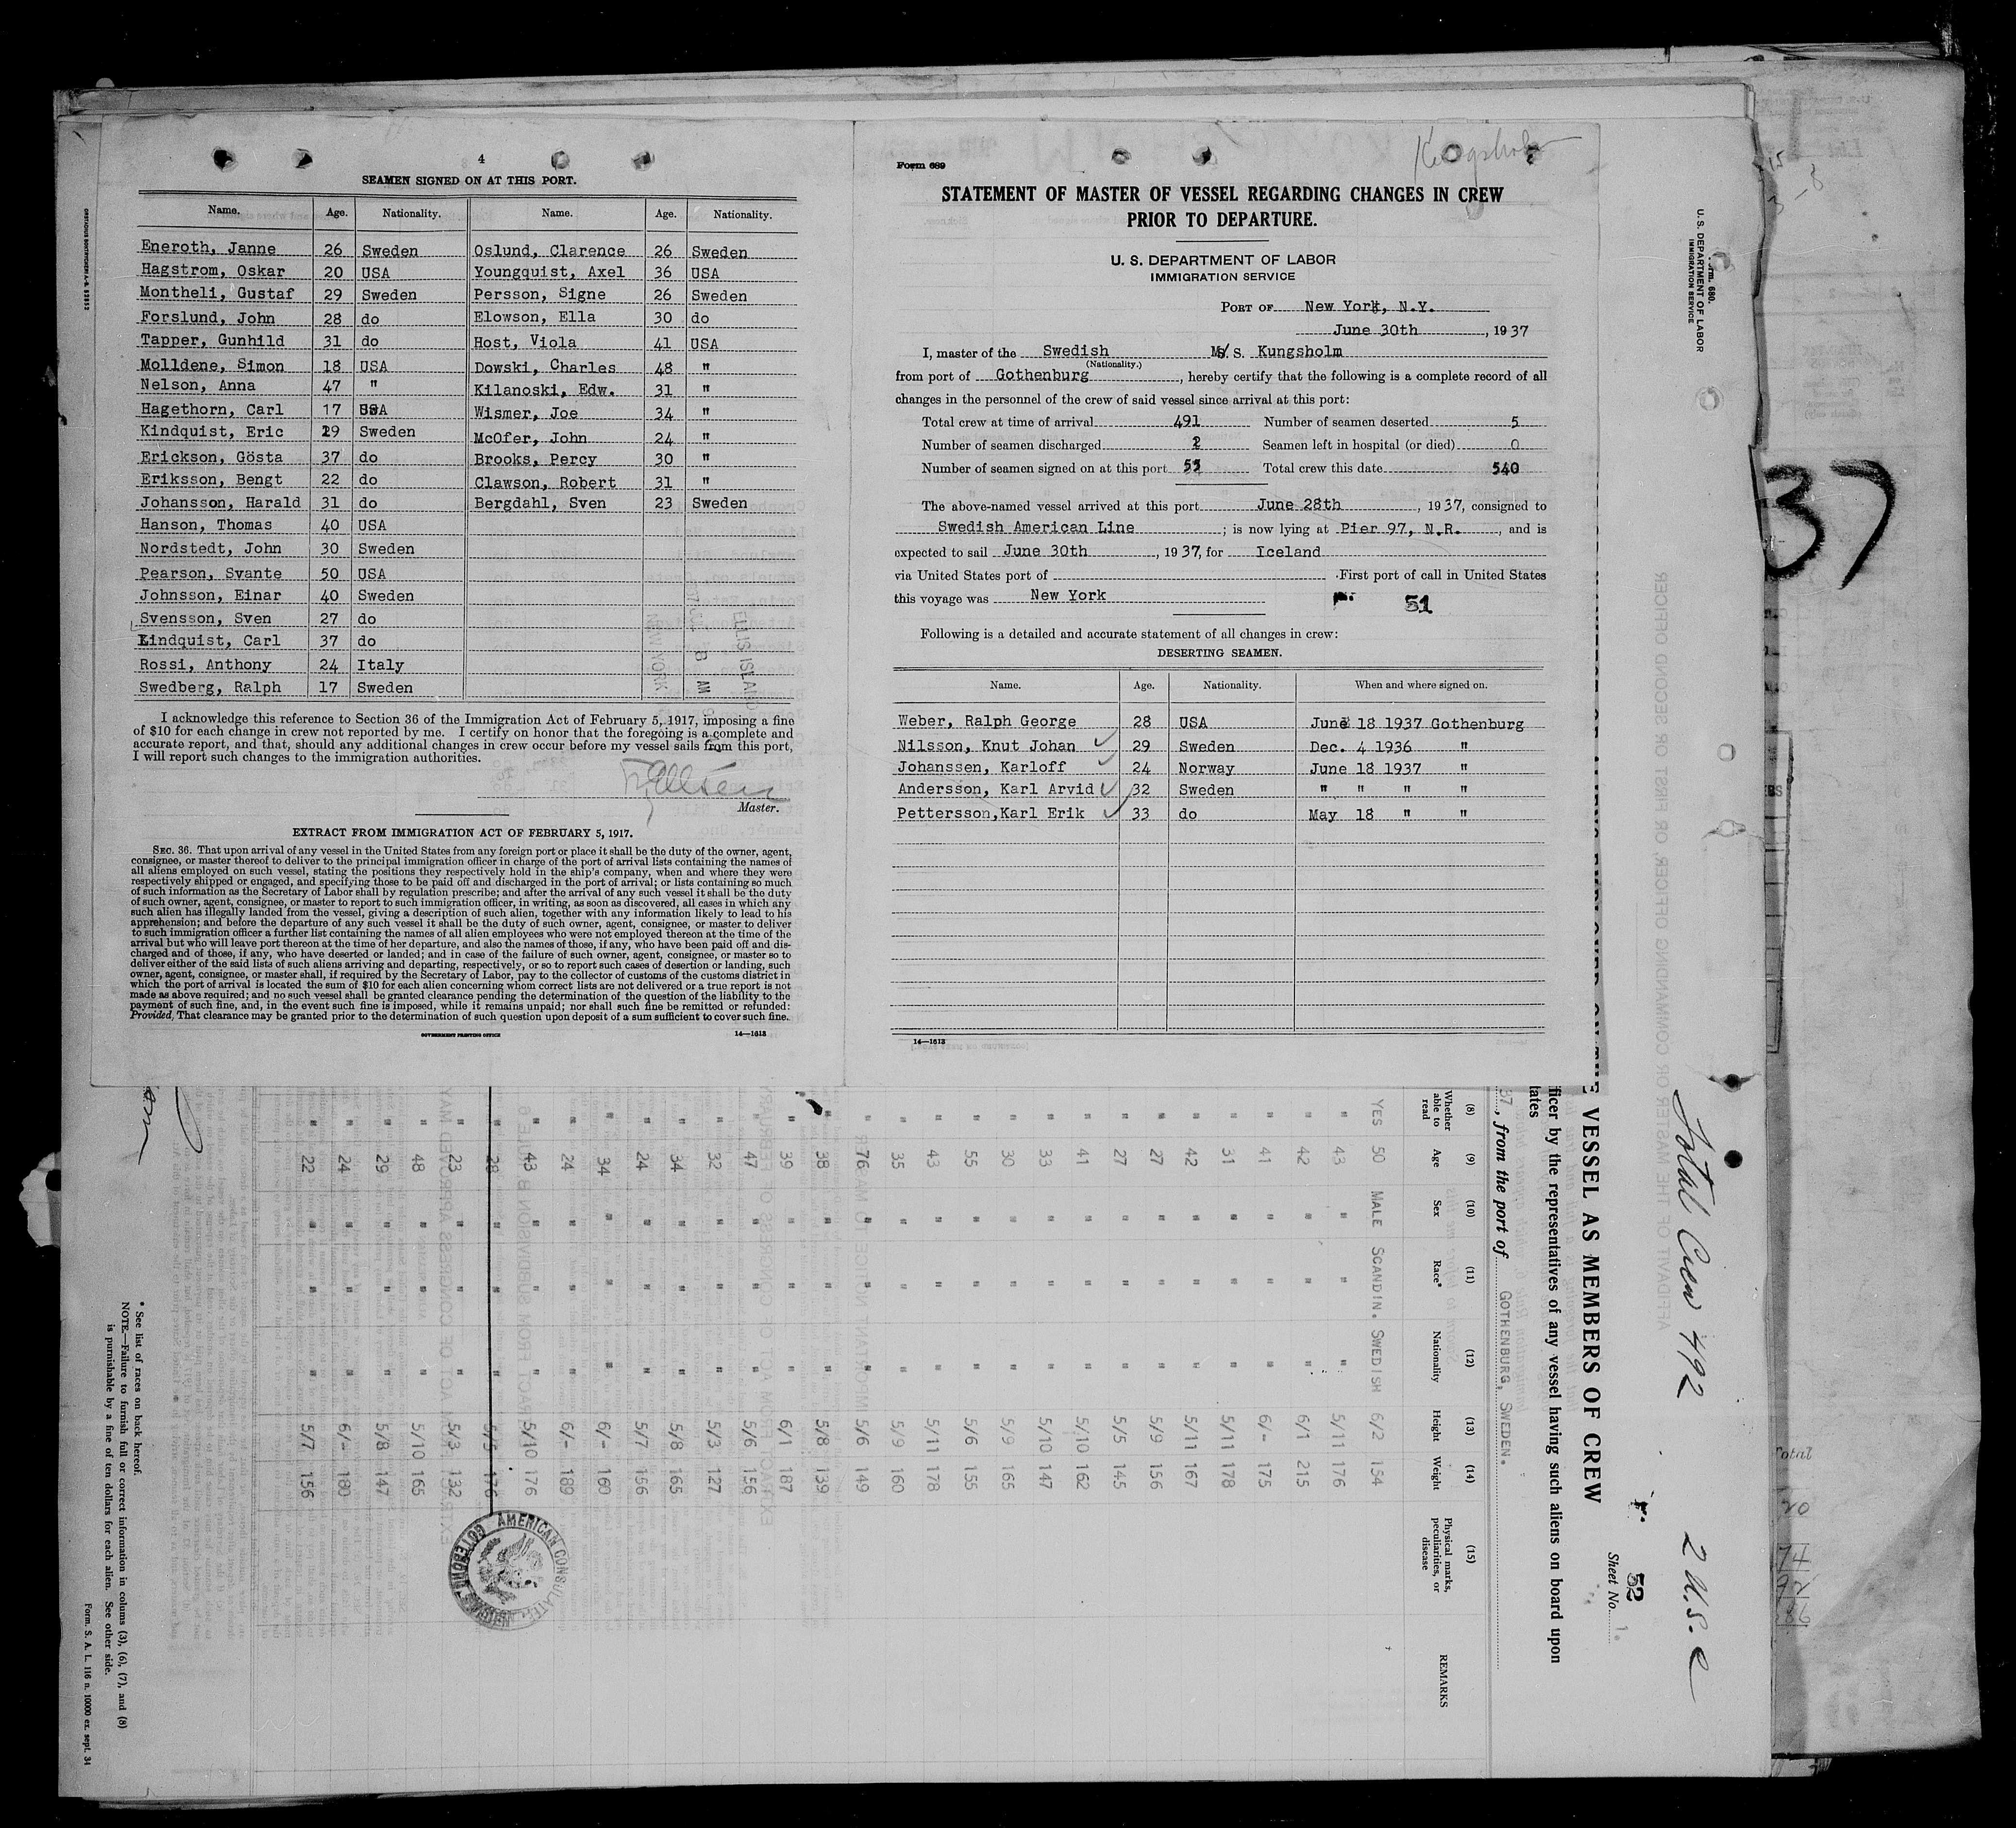 4
SEAMEN SIGNED ON AT THIS PORT.
Name. Age. Nationality. Name. Age. Nationality.
Eneroth, Janne 26 Sweden Oslund, Clarence 26 Sweden
Hagstrom, Oskar 20 USA Youngquist, Axel 36 USA
Montheli, Gustaf 29 Sweden Persson, Signe 26 Sweden
Forslund, John 28 do Elowson, Ella 30 do
Tapper, Gunhild 31 do Host, Viola 41 USA
Molldene, Simon 18 USA Dowski, Charles 48 "
Nelson, Anna 47 " Kilanoski, Edw. 31 "
Hagethorn, Carl 17 USA Wismer, Joe 34 "
Kindquist, Eric 29 Sweden McOfer, John 24 "
Erickson, Gösta 37 do Brooks, Percy 30 "
Eriksson, Bengt 22 do Clawson, Robert 31 "
Johansson, Harald 31 do Bergdahl, Sven 23 Sweden
Hanson, Thomas 40 USA
Nordstedt, John 30 Sweden
Pearson, Svante 50 USA
Johnsson, Einar 40 Sweden
Svensson, Sven 27 do
Lindquist, Carl 37 do
Rossi, Anthony 24 Italy
Swedberg, Ralph 17 Sweden
ELLIS ISLAND
NEW YORK
I acknowledge this reference to Section 36 of the Immigration Act of February 5, 1917, imposing a fine
of $10 for each change in crew not reported by me. I certify on honor that the foregoing is a complete and
accurate report, and that, should any additional changes in crew occur before my vessel sails from this port,
I will report such changes to the immigration authorities.
Master.
EXTRACT FROM IMMIGRATION ACT OF FEBRUARY 5, 1917.
SEC. 36. That upon arrival of any vessel in the United States from any foreign port or place it shall be the duty of the owner, agent,
consignee, or master thereof to deliver to the principal immigration officer in charge of the port of arrival lists containing the names of
all aliens employed on such vessel, stating the positions they respectively hold in the ship's company, when and where they were
respectively shipped or engaged, and specifying those to be paid off and discharged in the port of arrival; or lists containing so much
of such information as the Secretary of Labor shall by regulation prescribe; and after the arrival of any such vessel it shall be the duty
of such owner, agent, consignee, or master to report to such immigration officer, in writing, as soon as discovered, all cases in which any
such alien has illegally landed from the vessel, giving a description of such alien, together with any information likely to lead to his
apprehension; and before the departure of any such vessel it shall be the duty of such owner, agent, consignee, or master to deliver
to such immigration officer a further list containing the names of all alien employees who were not employed thereon at the time of the
arrival but who will leave port thereon at the time of her departure, and also the names of those, if any, who have been paid off and dis-
charged and of those, if any, who have deserted or landed; and in case of the failure of such owner, agent, consignee, or master so to
deliver either of the said lists of such aliens arriving and departing, respectively, or so to report such cases of desertion or landing, such
owner, agent, consignee, or master shall, if required by the Secretary of Labor, pay to the collector of customs of the customs district in
which the port of arrival is located the sum of $10 for each alien concerning whom correct lists are not delivered or a true report is not
made as above required; and no such vessel shall be granted clearance pending the determination of the question of the liability to the
payment of such fine, and, in the event such fine is imposed, while it remains unpaid; nor shall such fine be remitted or refunded:
Provided, That clearance may be granted prior to the determination of such question upon deposit of a sum sufficient to cover such fine.
GOVERNMENT PRINTING OFFICE 14—1613
Form 689
Kungsholm
STATEMENT OF MASTER OF VESSEL REGARDING CHANGES IN CREW
PRIOR TO DEPARTURE.
U. S. DEPARTMENT OF LABOR
IMMIGRATION SERVICE
PORT OF New York, N.Y.
June 30th, 1937
I, master of the Swedish M/S. S. Kungsholm
(Nationality.)
from port of Gothenburg, hereby certify that the following is a complete record of all
changes in the personnel of the crew of said vessel since arrival at this port:
Total crew at time of arrival 491 Number of seamen deserted 5
Number of seamen discharged 2 Seamen left in hospital (or died) 0
Number of seamen signed on at this port 55 Total crew this date 540
The above-named vessel arrived at this port June 28th, 1937, consigned to
Swedish American Line; is now lying at Pier 97, N.R., and is
expected to sail June 30th, 1937, for Iceland
via United States port of . First port of call in United States
this voyage was New York
51
Following is a detailed and accurate statement of all changes in crew:
DESERTING SEAMEN.
Name. Age. Nationality. When and where signed on.
Weber, Ralph George 28 USA June 18 1937 Gothenburg
Nilsson, Knut Johan 29 Sweden Dec. 4 1936 "
Johanssen, Karloff 24 Norway June 18 1937 "
Andersson, Karl Arvid 32 Sweden " " " "
Pettersson,Karl Erik 33 do May 18 " "
14—1613
Form. 680.
U. S. DEPARTMENT OF LABOR
IMMIGRATION SERVICE
37
Total Crew 492 2 U.S.C
VESSEL AS MEMBERS OF CREW
52
Sheet No. 1.
ficer by the representatives of any vessel having such aliens on board upon
tates
37, from the port of GOTHENBURG, SWEDEN.
(8) (9) (10) (11) (12) (13) (14) (15)
Whether able to read Age Sex Race* Nationality Height Weight Physical marks, peculiarities, or disease REMARKS
YES 50 MALE SCANDIN. SWEDISH 6/2 154
" 43 " " " 5/11 176
" 42 " " " 6/1 215
" 41 " " " 6/- 175
" 31 " " " 5/11 178
" 42 " " " 5/11 167
" 27 " " " 5/9 156
" 27 " " " 5/5 145
" 41 " " " 5/10 162
" 33 " " " 5/10 147
" 30 " " " 5/9 165
" 55 " " " 5/6 155
" 43 " " " 5/11 178
" 35 " " " 5/9 160
" 76 " " " 5/6 149
" 38 " " " 5/8 139
" 39 " " " 6/1 187
" 47 " " " 5/6 156
" 32 " " " 5/3 127
" 34 " " " 5/8 165
" 24 " " " 5/7 166
" 34 " " " 6/- 160
" 24 " " " 6/- 189
" 43 " " " 5/10 176
" 28 " " " 5/5 176
" 23 " " " 5/3 132
" 48 " " " 5/10 165
" 29 " " " 5/8 147
" 24 " " " 6/- 180
" 22 " " " 5/7 156
AMERICAN CONSULATE
* See list of races on back hereof.
NOTE.—Failure to furnish full or correct information in colums (3), (6), (7), and (8)
is punishable by a fine of ten dollars for each alien. See other side.
Form. S. A. L. 116 n. 10000 ex. sept. 34